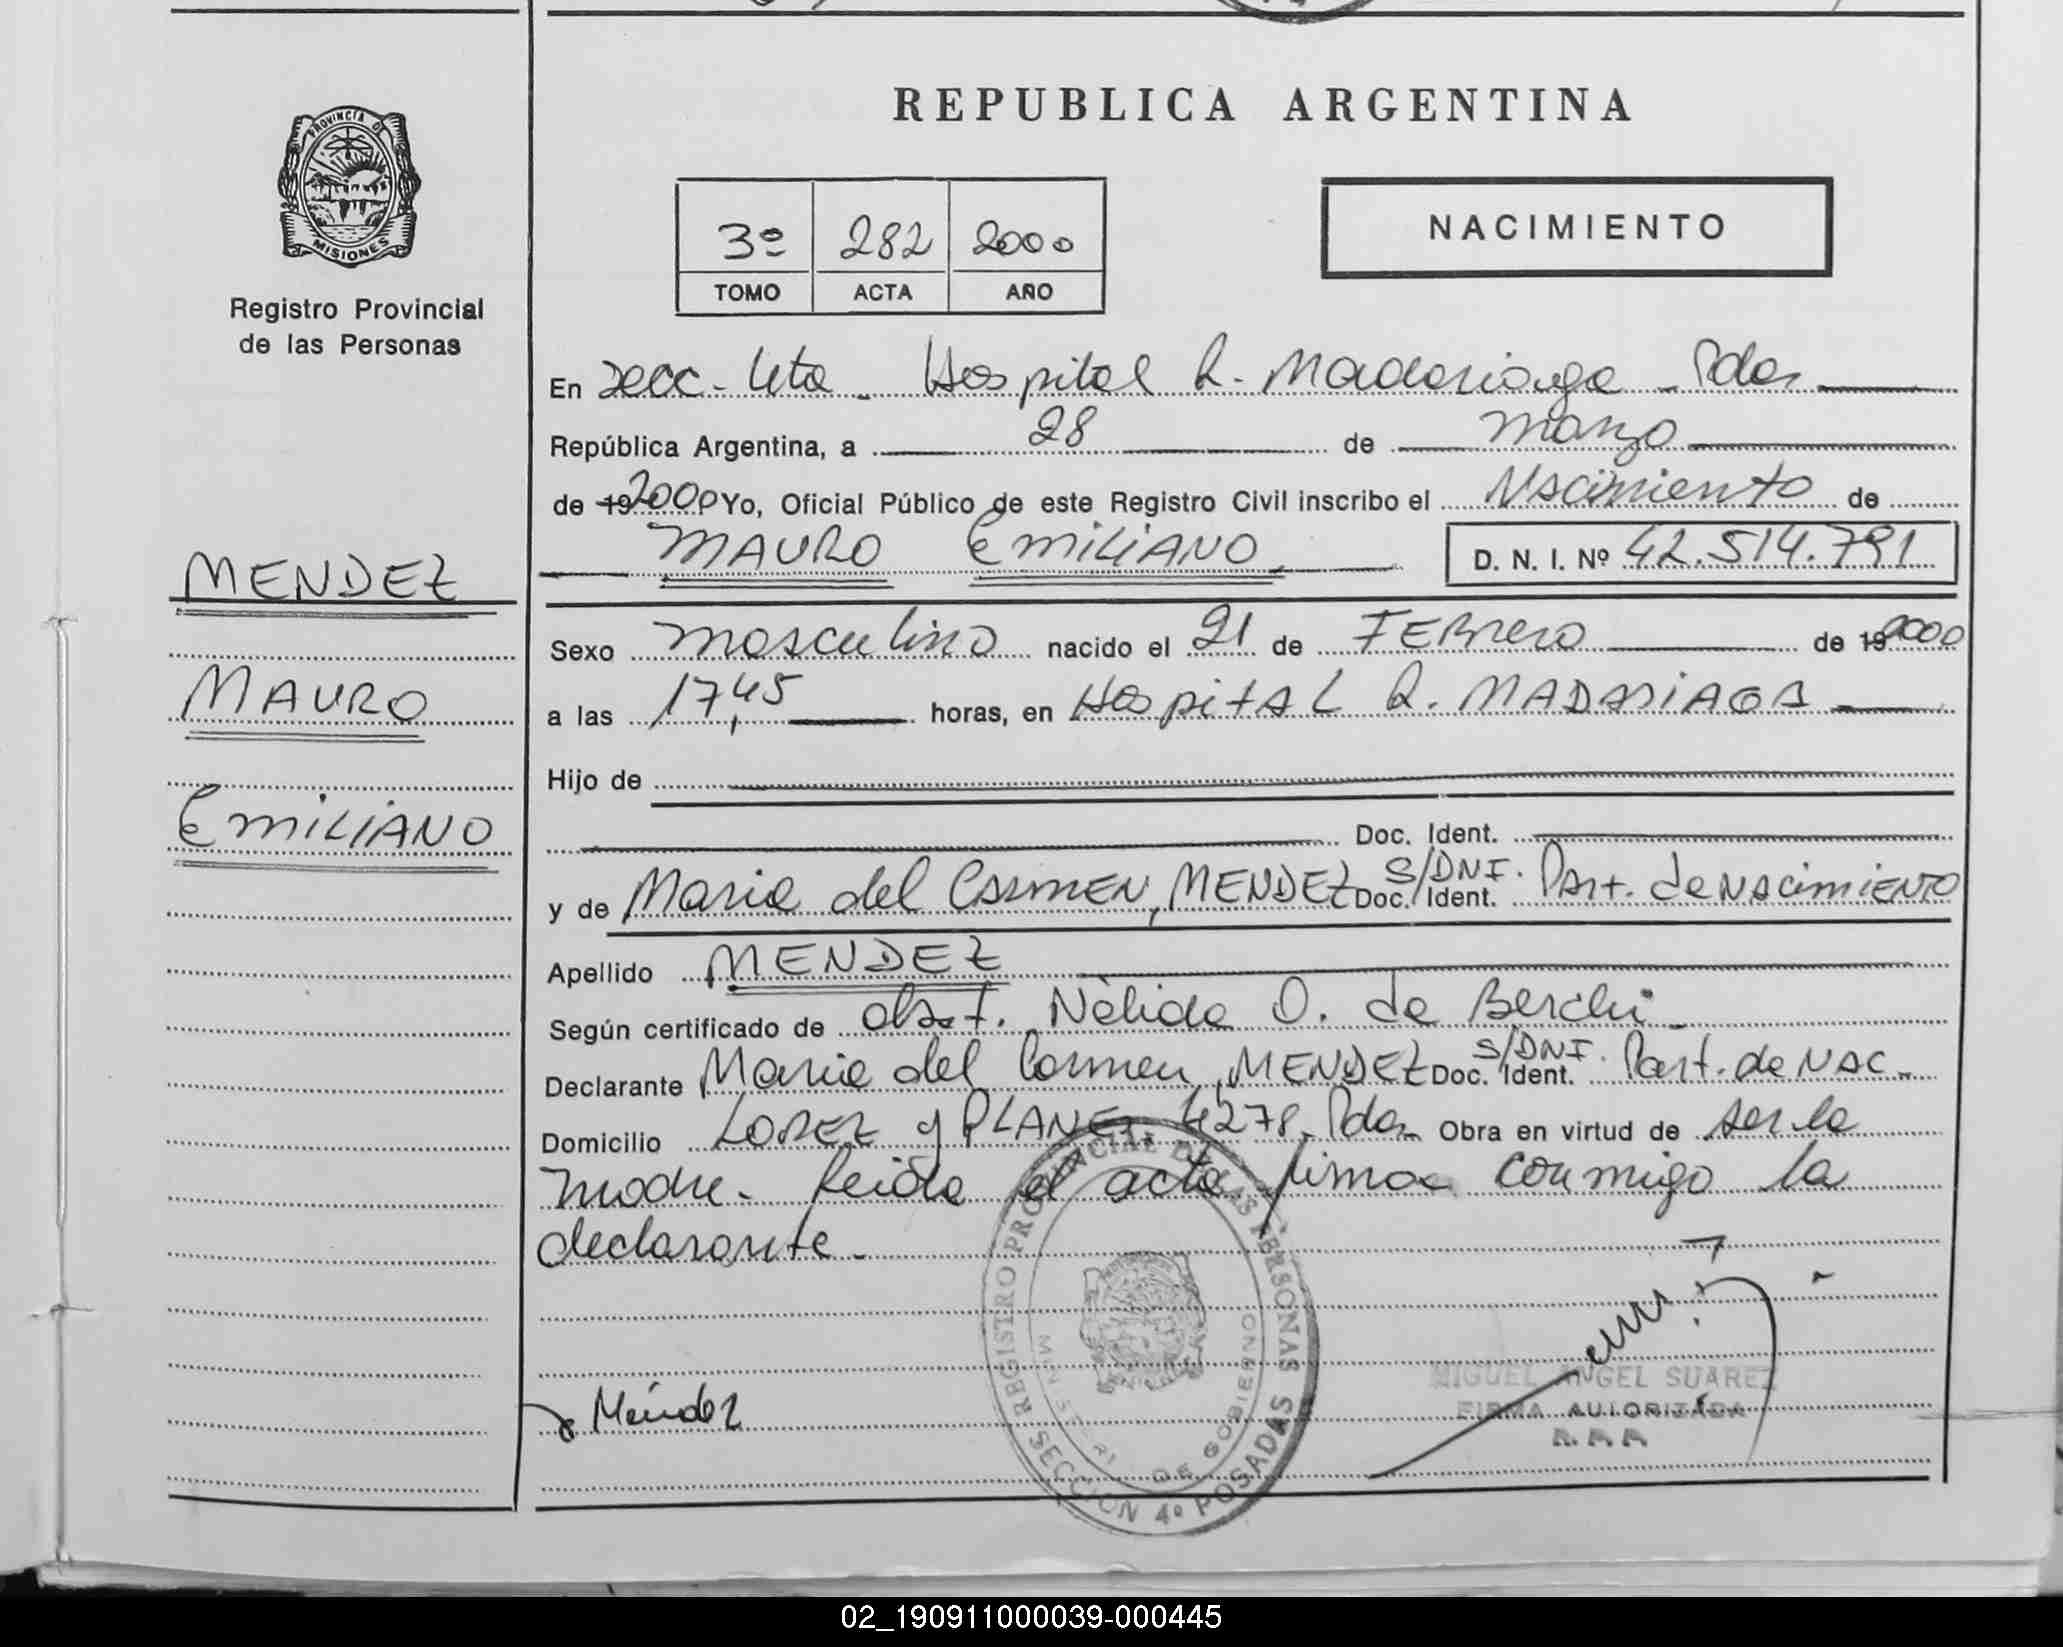 REPUBLICA ARGENTINA
PROVINCIA D
MISIONES
Registro Provincial
de las Personas
3º 282 2000
TOMO ACTA AÑO
NACIMIENTO
En Secc. 4ta. Hospital R. Madariaga - Pdas
República Argentina, a 28 de marzo
de 19 2000 Yo, Oficial Público de este Registro Civil inscribo el Nacimiento de
MAURO EMILIANO D. N. I. Nº 42.514.791
MENDEZ
MAURO
EMILIANO
Sexo masculino nacido el 21 de FEBrero de 19 2000
a las 17,45 horas, en HospitAL R. MADARIAGA
Hijo de
Doc. Ident.
y de Maria del CARMEN, MENDEZ Doc. Ident. S/DNI. Part. de NAcimiENTO
Apellido MENDEZ
Según certificado de obst. Nélida O. de Berchi
Declarante Maria del Carmen, MENDEZ Doc. Ident. S/DNI. Part. de NAC.
Domicilio LOPEZ y PLANES 4278. Pdas. Obra en virtud de ser la
madre. Leida el acta firma conmigo la
declarante.
REGISTRO PROVINCIAL DE LAS PERSONAS
SECCION 4º POSADAS
DE GOBIERNO
Méndez
MIGUEL ANGEL SUAREZ
FIRMA AUTORIZADA
02_190911000039-000445